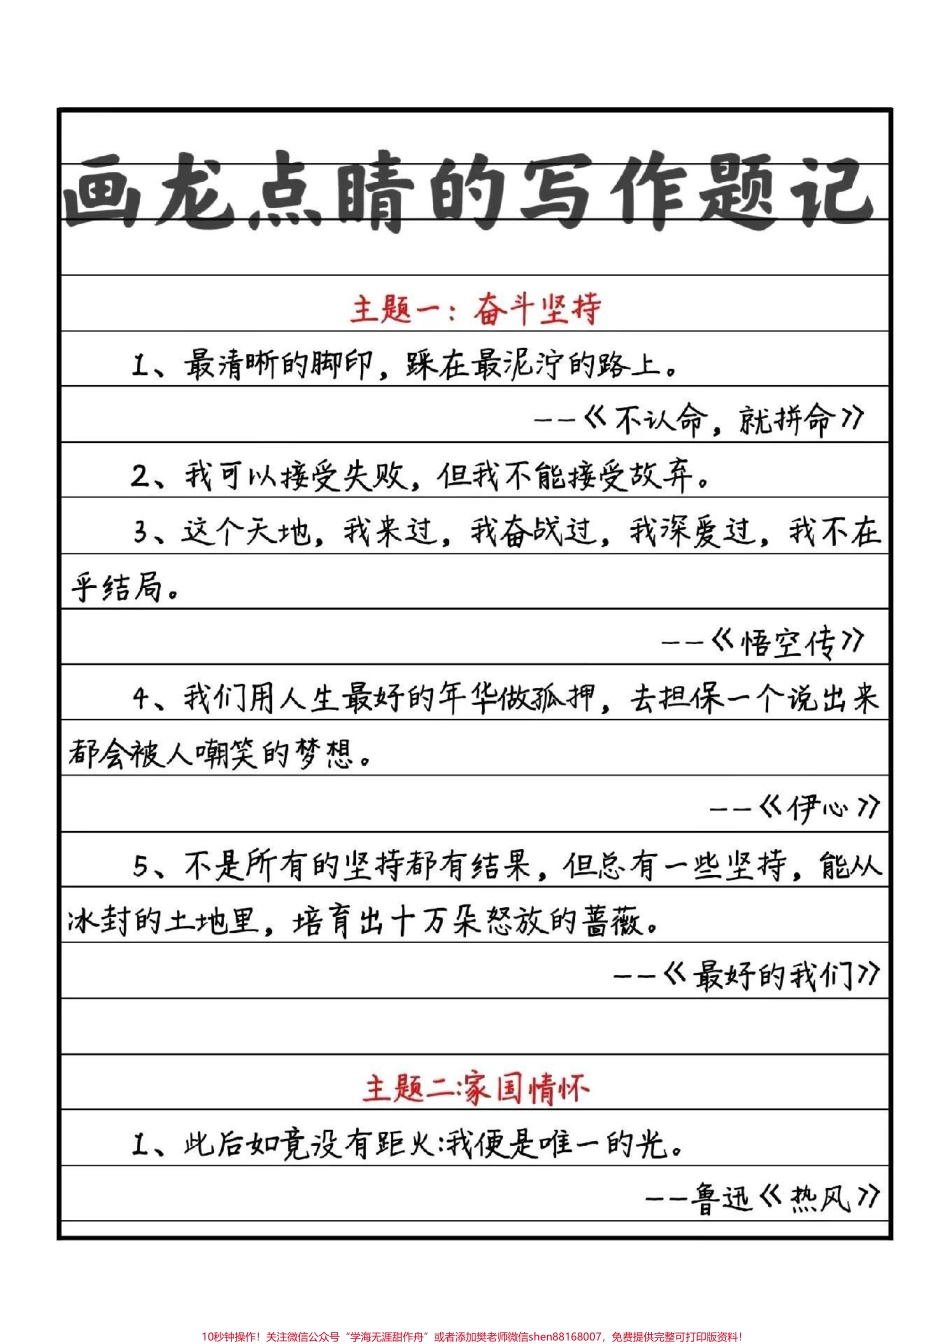 画龙点睛的写作题记
主题一：奋斗坚持
1、最清晰的脚印，踩在最泥泞的路上。
--《不认命，就拼命》
2、我可以接受失败，但我不能接受故弃。
3、这个天地，我来过，我奋战过，我深爱过，我不在
乎结局。
--《悟空传》
4、我们用人生最好的年华做孤押，去担保一个说出来
都会被人嘲笑的梦想。
--《伊心》
5、不是所有的坚持都有结果，但总有一些坚持，能从
冰封的土地里，培育出十万朵怒放的蔷薇。
--《最好的我们》
主题二:家国情怀
1、此后如竟没有距火:我便是唯一的光。
--鲁迅《热风》
10秒钟操作！关注微信公众号“学海无涯甜作舟”或者添加樊老师微信shen88168007，免费提供完整可打印版资料！